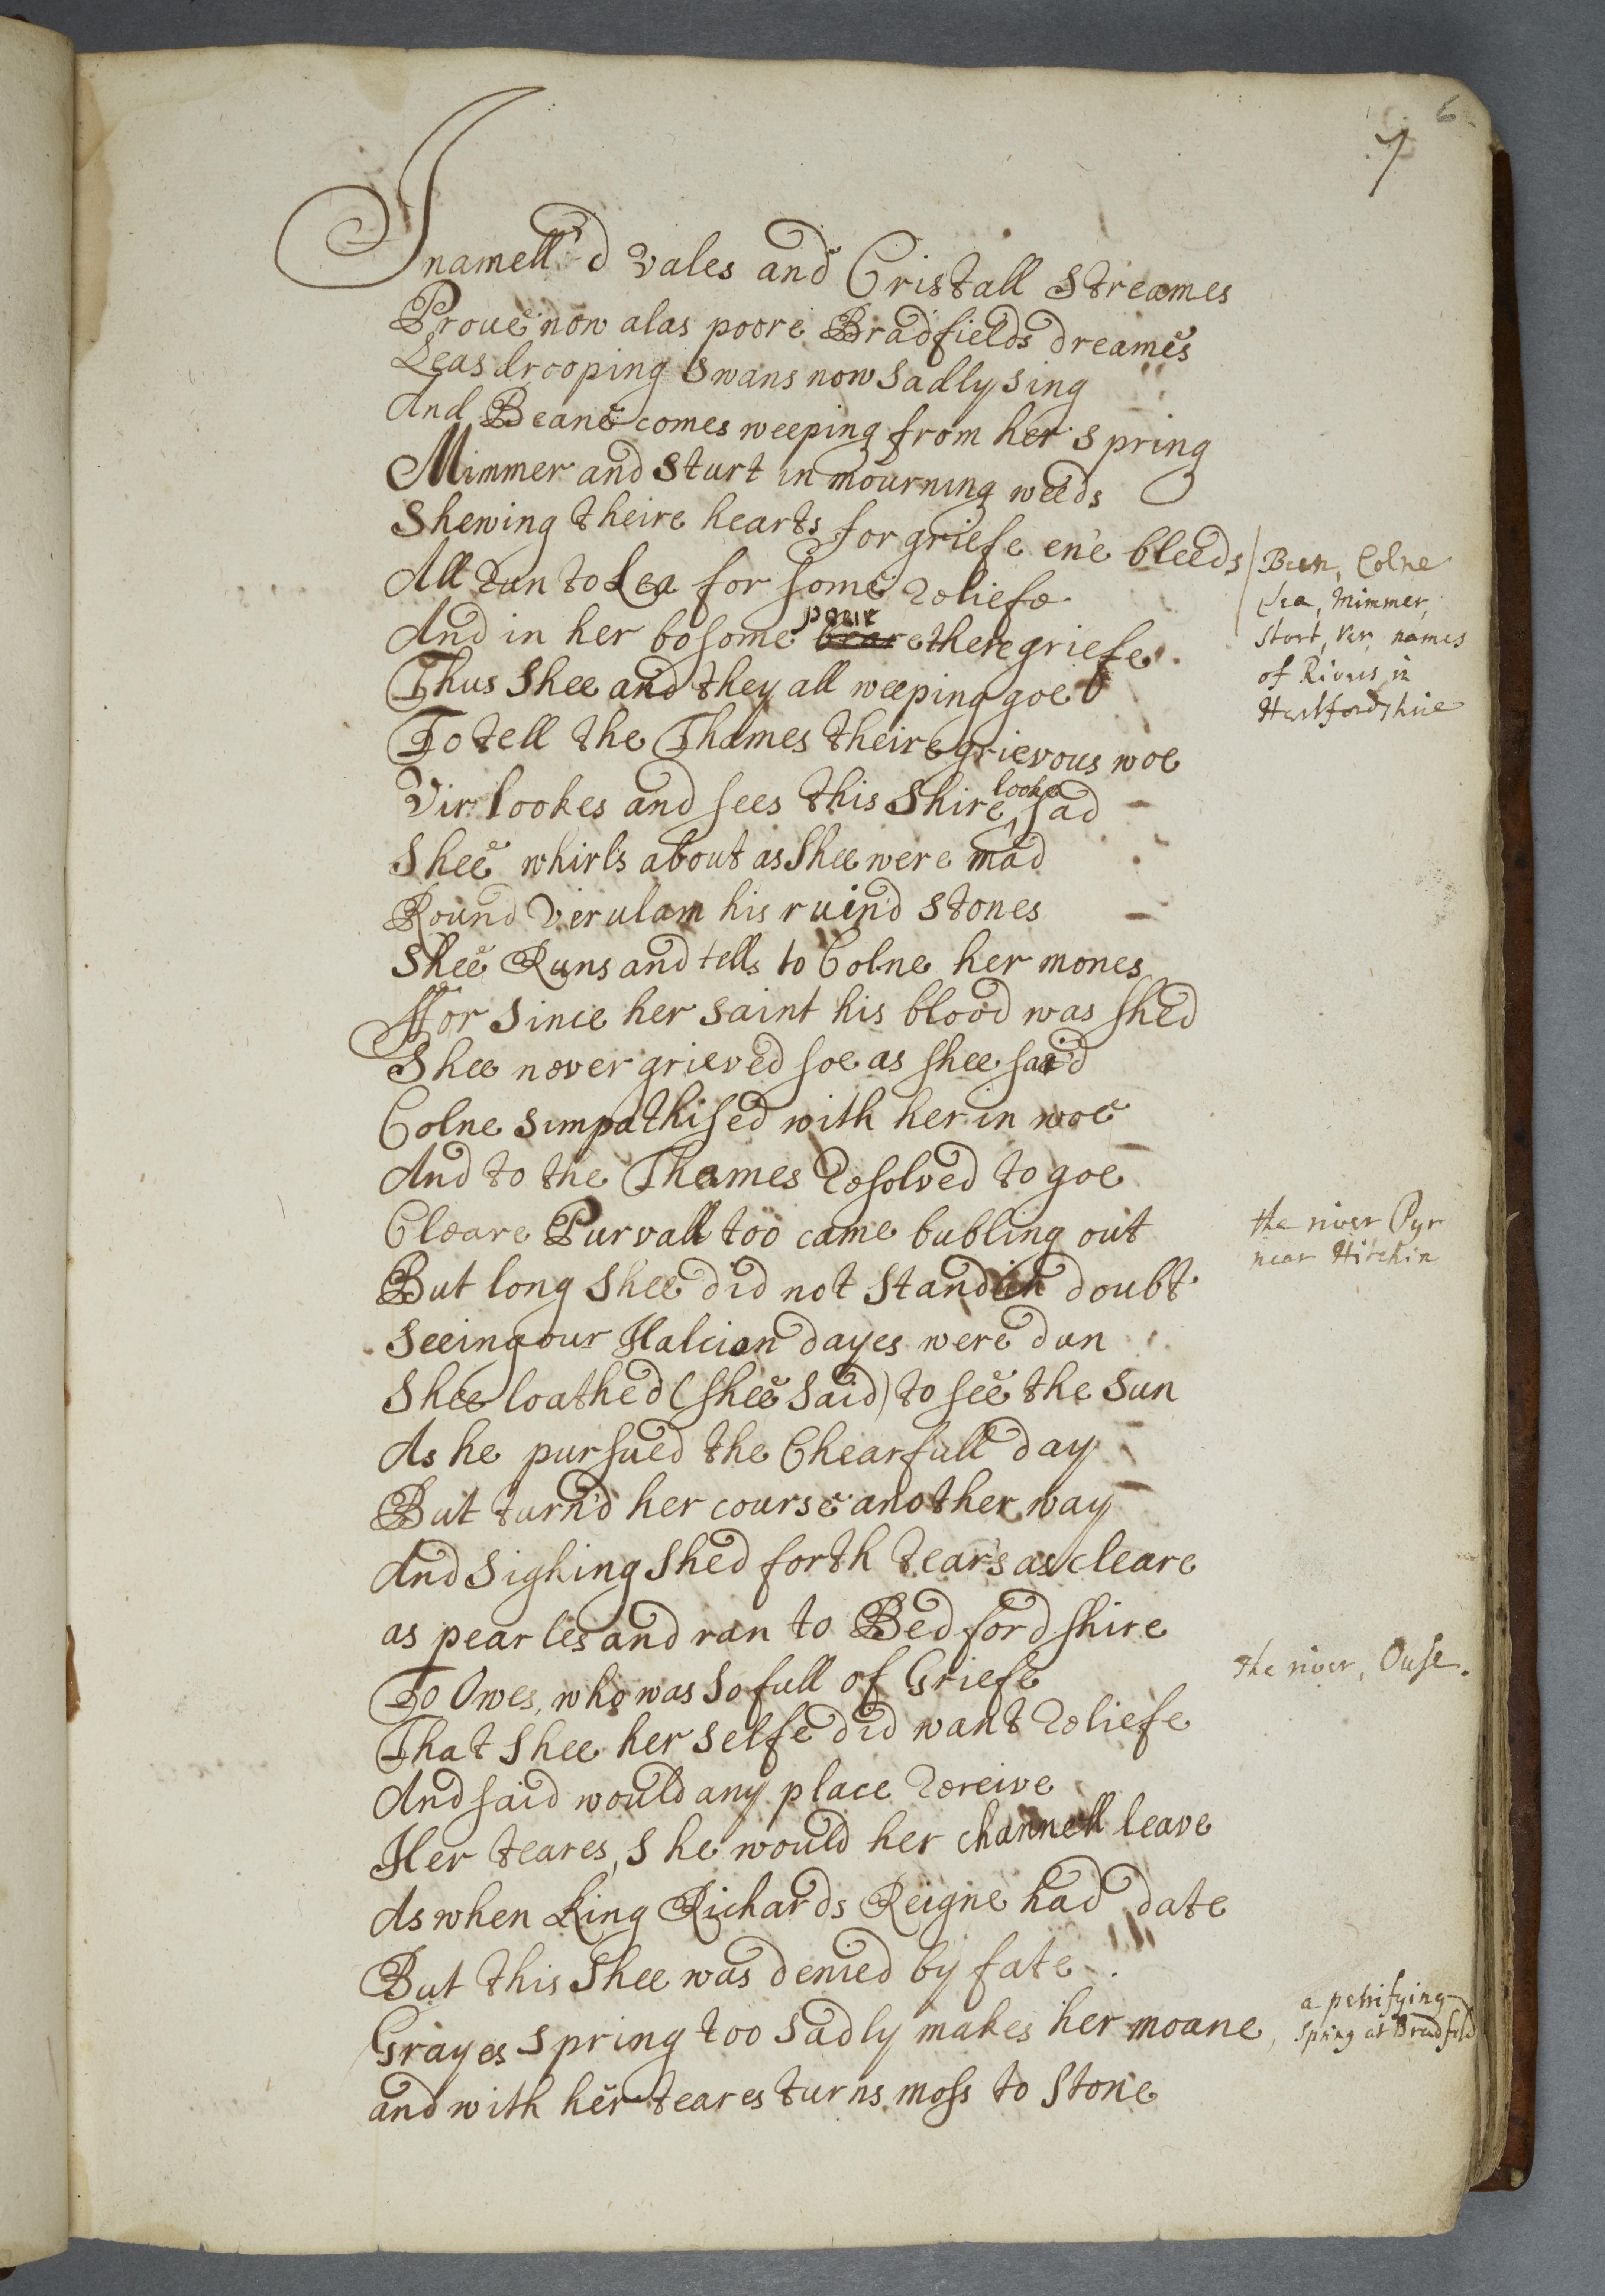 6
7
Inamell'd vales and Cristall Streames
Proue now alas poore Bradfields dreames
Leas drooping Swans now Sadly Sing
And Beane comes weeping from her Spring
Mimmer and Sturt in mourning weeds
Shewing theire hearts for griefe en'e bleeds
All Run to Lea for some Reliefe
And in her bosome poure there griefe
Thus Shee and they all weeping goe
To tell the Thames theire grievous woe
Vir lookes and sees this Shire looke sad
Shee whirl's about as Shee were mad
Round Verulam his ruin'd Stones
Shee Runs and tells to Colne her mones
Ffor Since her Saint his blood was shed
Shee never grieved soe as shee said
Colne Simpathised with her in woe
And to the Thames Resolved to goe
Cleare Purvall too came bubling out
But long Shee did not Stand in doubt
Seeing our Halcion dayes were dun
Shee loathed (shee Said) to see the Sun
As he pursued the Chearfull day
But turn'd her course another way
And Sighing Shed forth tear's as cleare
as pearles and ran to Bedfordshire
To Owes, who was So full of Griefe
That Shee her Selfe did want Reliefe
And said would any place Receive
Her teares, She would her channell leave
As when King Richards Reigne had date
But this Shee was denied by fate
Grayes Spring too Sadly makes her moane
and with her teares turns moss to Stone
Bean, Colne
Lea, Mimmer,
Stort, Ver, names
of Rivers in
Hertfordshire
the river Pyr
near Hitchin
the river, Ouse.
a petrifying
Spring at Bradfeld